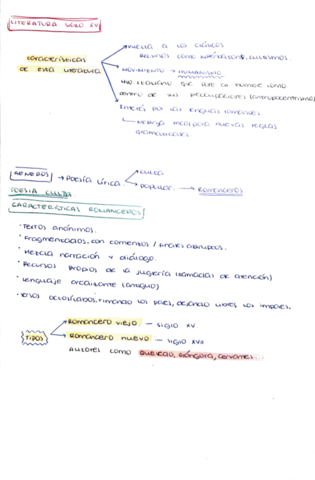 LITERATURA SIGLO XV
características de esta literatura
vuelta a los clásicos
Recursos como cultismos.
movimiento → HUMANISMO
que pone al hombre como
centro de sus preocupaciones (antropocentrismo)
Interés por las lenguas romances
Nebrija incorpora nuevas reglas
gramaticales
GÉNEROS → Poesía lírica
culta
popular → Romanceros
POESÍA CULTA
CARACTERÍSTICAS ROMANCEROS
· Textos anónimos.
· Fragmentados, con comienzos / finales abruptos.
· Mezcla narración y diálogo.
· Recursos propios de la juglaría (llamadas de atención)
· Lenguaje arcaizante (antiguo)
· Versos octosílabos, rimando los pares, dejando libres los impares.
TIPOS
Romancero viejo – siglo XV
Romancero nuevo – siglo XVII
autores como Quevedo, Góngora, Cervantes.